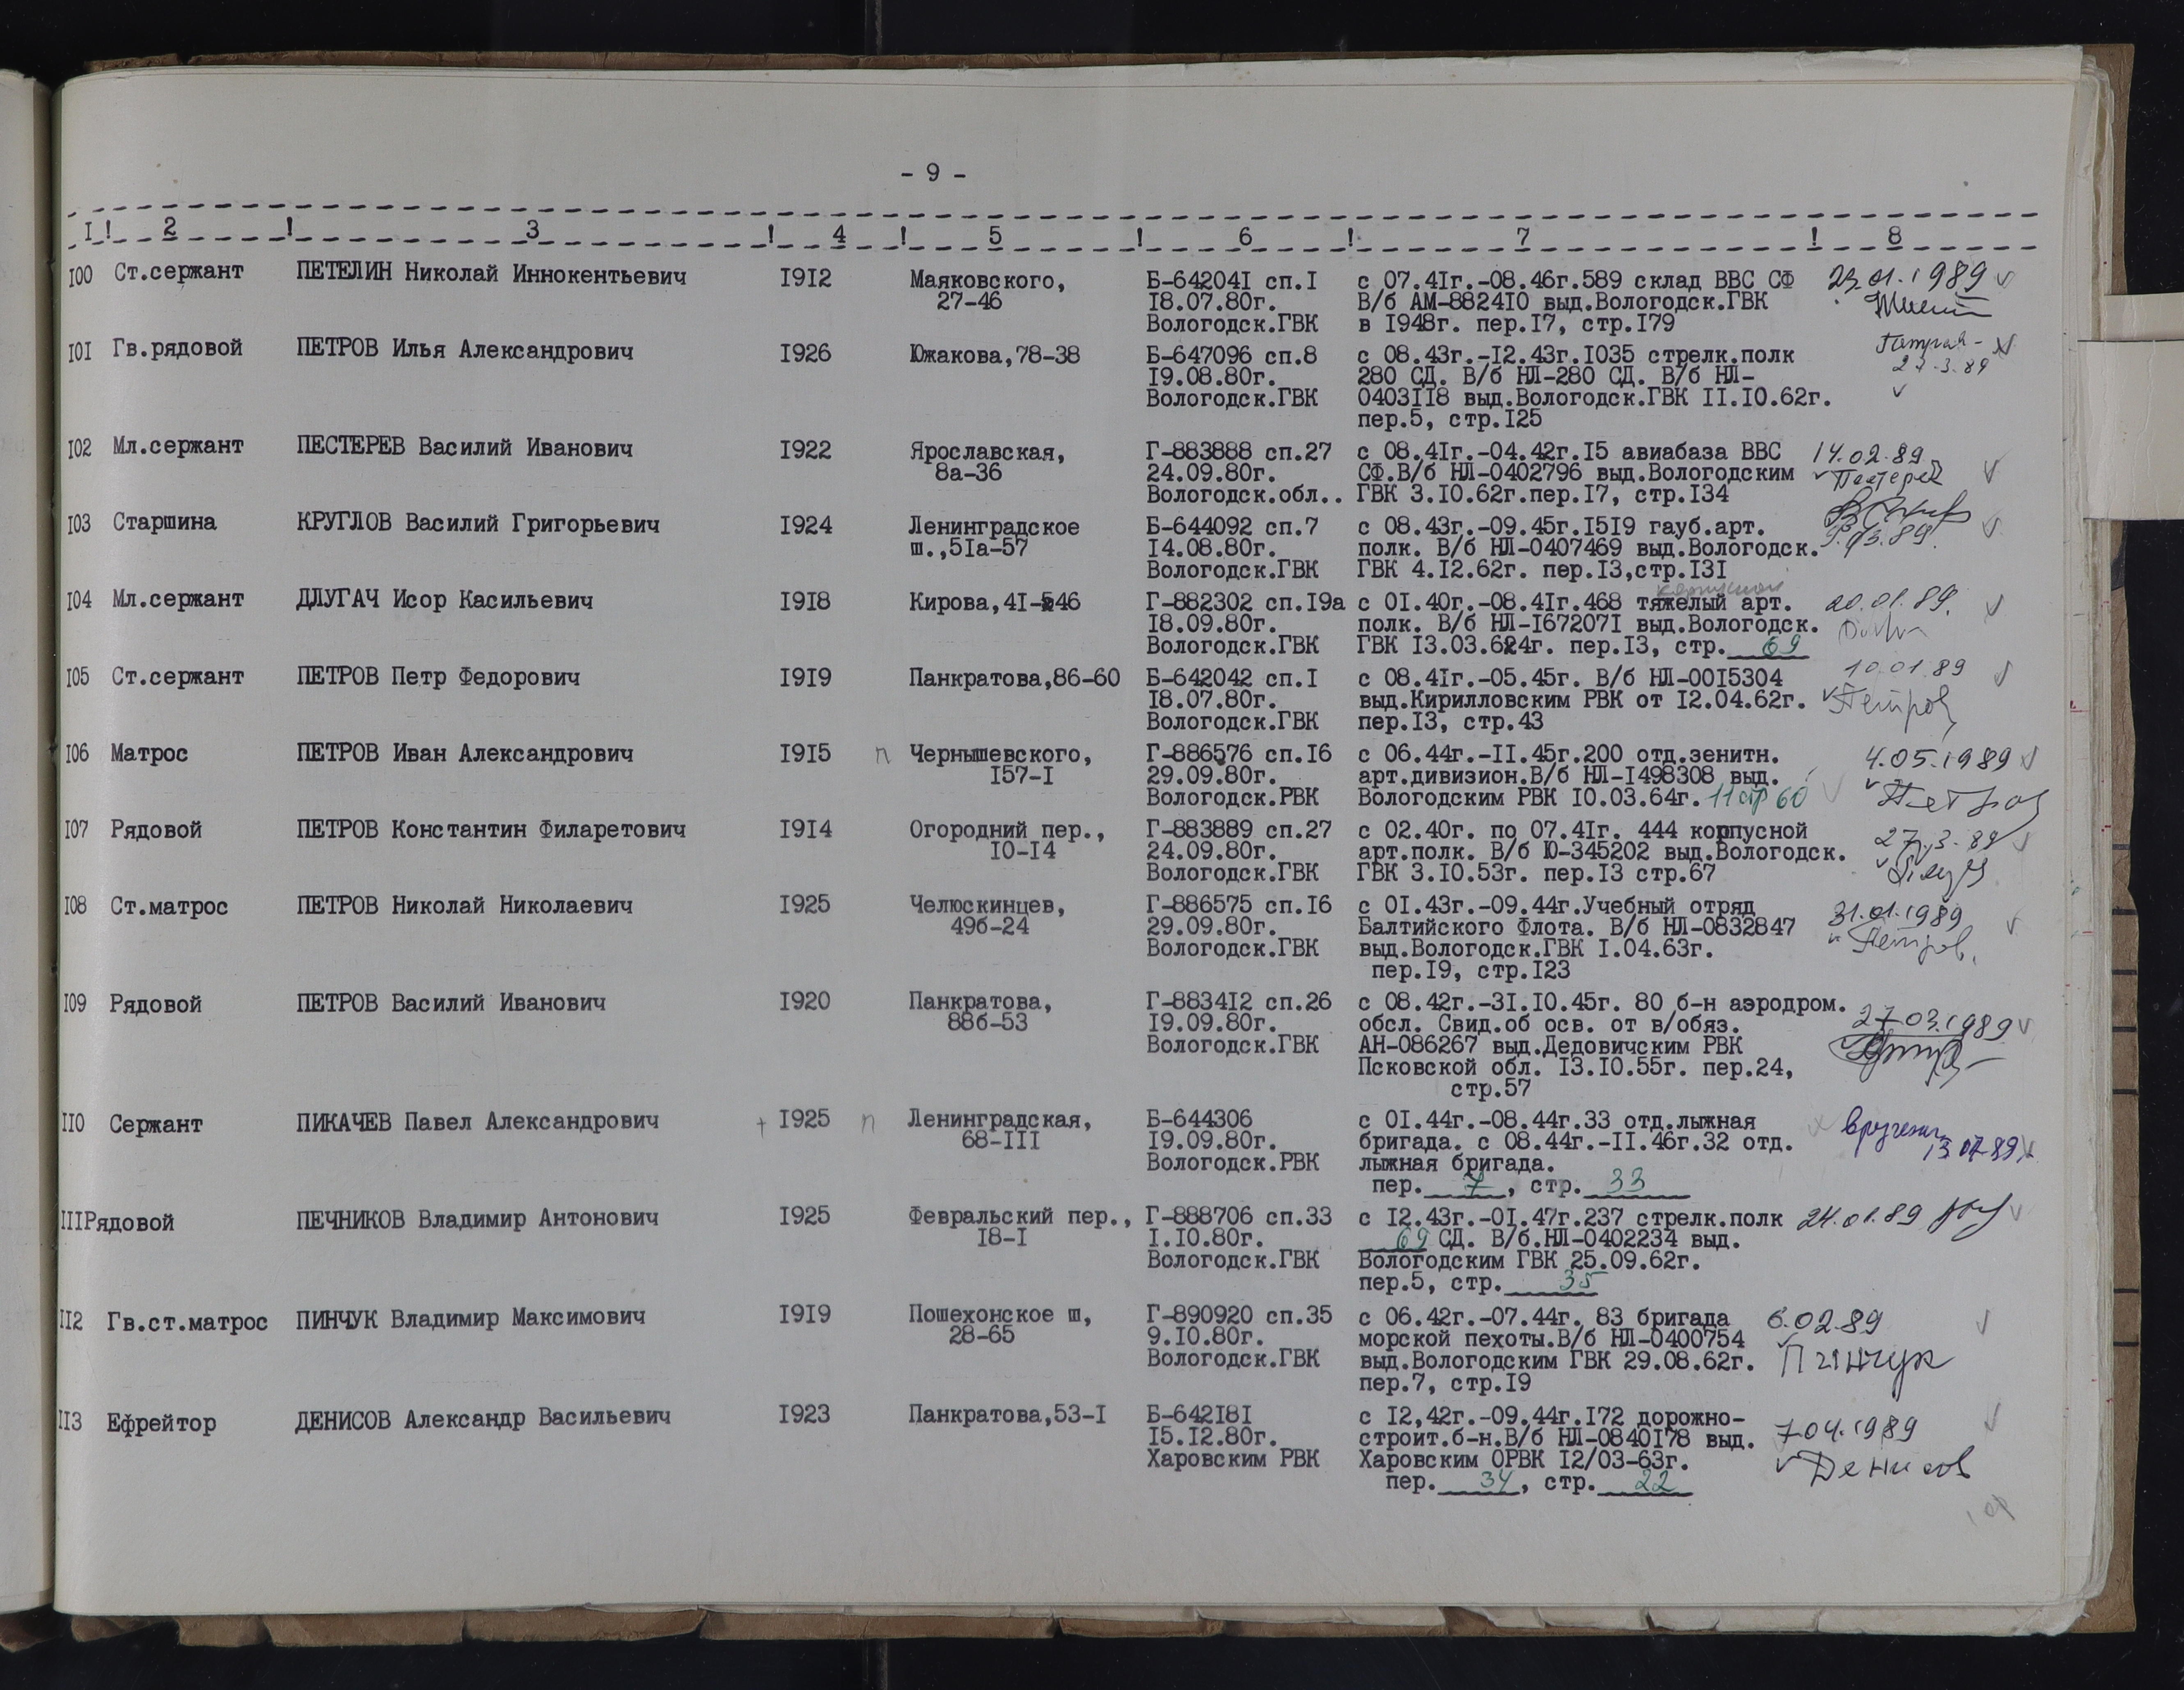 - 9 -
I ! 2 ! 3 ! 4 ! 5 ! 6 ! 7 ! 8
I00 Ст.сержант ПЕТЕЛИН Николай Иннокентьевич I9I2 Маяковского, Б-64204I сп.I с 07.4Iг.-08.46г.589 склад ВВС СФ 23.01.1989
27-46 I8.07.80г. В/б АМ-8824I0 выд.Вологодск.ГВК
Вологодск.ГВК в I948г. пер.I7, стр.I79
I0I Гв.рядовой ПЕТРОВ Илья Александрович I926 Южакова,78-38 Б-647096 сп.8 с 08.43г.-I2.43г.I035 стрелк.полк
I9.08.80г. 280 СД. В/б НЛ-280 СД. В/б НЛ- 27.3.89
Вологодск.ГВК 0403II8 выд.Вологодск.ГВК II.I0.62г.
пер.5, стр.I25
I02 Мл.сержант ПЕСТЕРЕВ Василий Иванович I922 Ярославская, Г-883888 сп.27 с 08.4Iг.-04.42г.I5 авиабаза ВВС 14.02.89
8а-36 24.09.80г. СФ.В/б НЛ-0402796 выд.Вологодским
Вологодск.обл.. ГВК 3.I0.62г.пер.I7, стр.I34
I03 Старшина КРУГЛОВ Василий Григорьевич I924 Ленинградское Б-644092 сп.7 с 08.43г.-09.45г.I5I9 гауб.арт.
ш.,5Iа-57 I4.08.80г. полк. В/б НЛ-0407469 выд.Вологодск. 9.03.89.
Вологодск.ГВК ГВК 4.I2.62г. пер.I3,стр.I3I
I04 Мл.сержант ДЛУГАЧ Исор Касильевич I9I8 Кирова,4I-46 Г-882302 сп.I9а с 0I.40г.-08.4Iг.468 тяжелый арт. 20.01.89.
I8.09.80г. полк. В/б НЛ-I67207I выд.Вологодск.
Вологодск.ГВК ГВК I3.03.64г. пер.I3, стр. 69
I05 Ст.сержант ПЕТРОВ Петр Федорович I9I9 Панкратова,86-60 Б-642042 сп.I с 08.4Iг.-05.45г. В/б НЛ-00I5304 10.01.89
I8.07.80г. выд.Кирилловским РВК от I2.04.62г. Петров
Вологодск.ГВК пер.I3, стр.43
I06 Матрос ПЕТРОВ Иван Александрович I9I5 п Чернышевского, Г-886576 сп.I6 с 06.44г.-II.45г.200 отд.зенитн. 4.05.1989
I57-I 29.09.80г. арт.дивизион.В/б НЛ-I498308 выд.
Вологодск.РВК Вологодским РВК I0.03.64г. 11 стр 60 Петров
I07 Рядовой ПЕТРОВ Константин Филаретович I9I4 Огородний пер., Г-883889 сп.27 с 02.40г. по 07.4Iг. 444 корпусной 27.3.89
I0-I4 24.09.80г. арт.полк. В/б Ю-345202 выд.Вологодск.
Вологодск.ГВК ГВК 3.I0.53г. пер.I3 стр.67
I08 Ст.матрос ПЕТРОВ Николай Николаевич I925 Челюскинцев, Г-886575 сп.I6 с 0I.43г.-09.44г.Учебный отряд 31.01.1989
49б-24 29.09.80г. Балтийского Флота. В/б НЛ-0832847 Петров.
Вологодск.ГВК выд.Вологодск.ГВК I.04.63г.
пер.I9, стр.I23
I09 Рядовой ПЕТРОВ Василий Иванович I920 Панкратова, Г-8834I2 сп.26 с 08.42г.-3I.I0.45г. 80 б-н аэродром.
88б-53 I9.09.80г. обсл. Свид.об осв. от в/обяз. 27.03.1989
Вологодск.ГВК АН-086267 выд.Дедовичским РВК
Псковской обл. I3.I0.55г. пер.24,
стр.57
II0 Сержант ПИКАЧЕВ Павел Александрович I925 п Ленинградская, Б-644306 с 0I.44г.-08.44г.33 отд.лыжная
68-III I9.09.80г. бригада. с 08.44г.-II.46г.32 отд. 13.07.89
Вологодск.РВК лыжная бригада.
пер. 7 , стр. 33
IIIРядовой ПЕЧНИКОВ Владимир Антонович I925 Февральский пер., Г-888706 сп.33 с I2.43г.-0I.47г.237 стрелк.полк 24.01.89
I8-I I.I0.80г. 69 СД. В/б.НЛ-0402234 выд.
Вологодск.ГВК Вологодским ГВК 25.09.62г.
пер.5, стр. 35
II2 Гв.ст.матрос ПИНЧУК Владимир Максимович I9I9 Пошехонское ш, Г-890920 сп.35 с 06.42г.-07.44г. 83 бригада 6.02.89
28-65 9.I0.80г. морской пехоты.В/б НЛ-0400754
Вологодск.ГВК выд.Вологодским ГВК 29.08.62г. Пинчук
пер.7, стр.I9
II3 Ефрейтор ДЕНИСОВ Александр Васильевич I923 Панкратова,53-I Б-642I8I с I2,42г.-09.44г.I72 дорожно- 7.04.1989
I5.I2.80г. строит.б-н.В/б НЛ-0840I78 выд.
Харовским РВК Харовским ОРВК I2/03-63г. Денисов
пер. 34, стр. 22